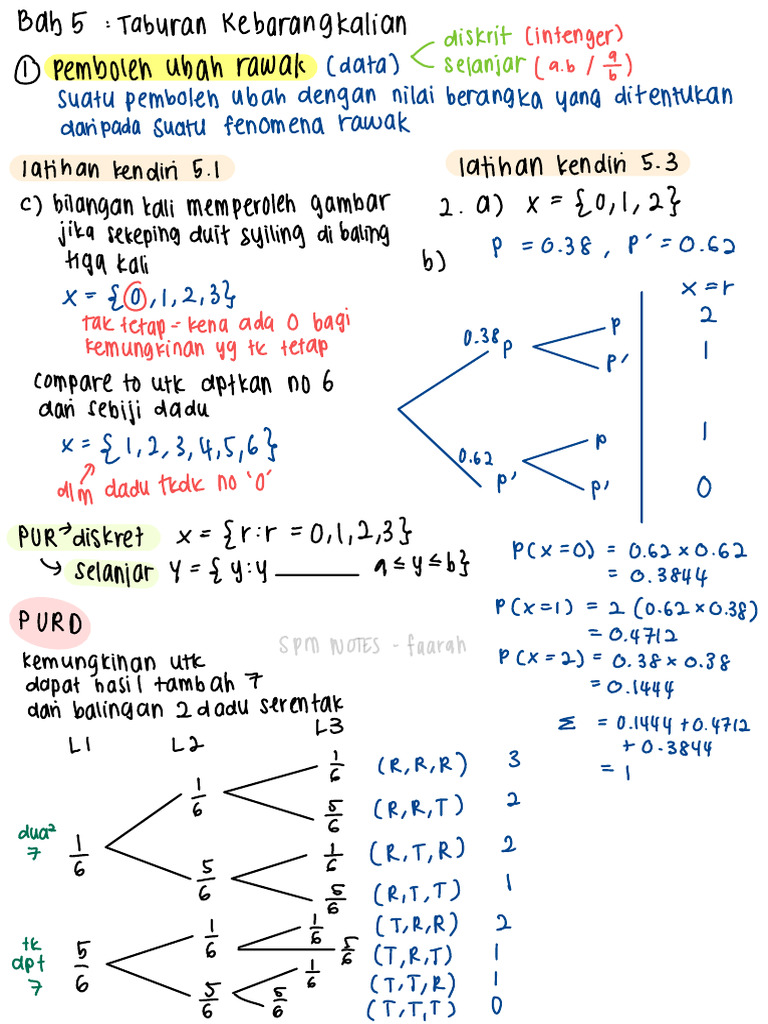 Bab 5 : Taburan Kebarangkalian
① pemboleh ubah rawak (data) < diskrit (intenger)
selanjar (a.b / a/b)
suatu pemboleh ubah dengan nilai berangka yang ditentukan
daripada suatu fenomena rawak
latihan kendiri 5.1
c) bilangan kali memperoleh gambar
jika sekeping duit syiling di baling
tiga kali
x = {0, 1, 2, 3}
tak tetap - kena ada 0 bagi
kemungkinan yg tk tetap
compare to utk dptkan no 6
dari sebiji dadu
x = {1, 2, 3, 4, 5, 6}
dlm dadu tkdk no '0'
PUR → diskret x = {r : r = 0, 1, 2, 3}
↳ selanjar Y = {y : y ______ a ≤ y ≤ b}
PURD
kemungkinan utk
dapat hasil tambah 7
dari balingan 2 dadu serentak
L1 L2 L3
dua² 7
1/6
1/6
1/6 (R, R, R) 3
5/6 (R, R, T) 2
5/6
1/6 (R, T, R) 2
5/6 (R, T, T) 1
tk dpt 7
5/6
1/6
1/6 (T, R, R) 2
5/6 (T, R, T) 1
5/6
1/6 (T, T, R) 1
5/6 (T, T, T) 0
latihan kendiri 5.3
2. a) x = {0, 1, 2}
P = 0.38 , P' = 0.62
b)
x = r
0.38 P
P 2
P' 1
0.62 P'
P 1
P' 0
P(x = 0) = 0.62 x 0.62
= 0.3844
P(x = 1) = 2 (0.62 x 0.38)
= 0.4712
P(x = 2) = 0.38 x 0.38
= 0.1444
Σ = 0.1444 + 0.4712
+ 0.3844
= 1
SPM NOTES - faarah